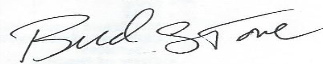 Bud Stone